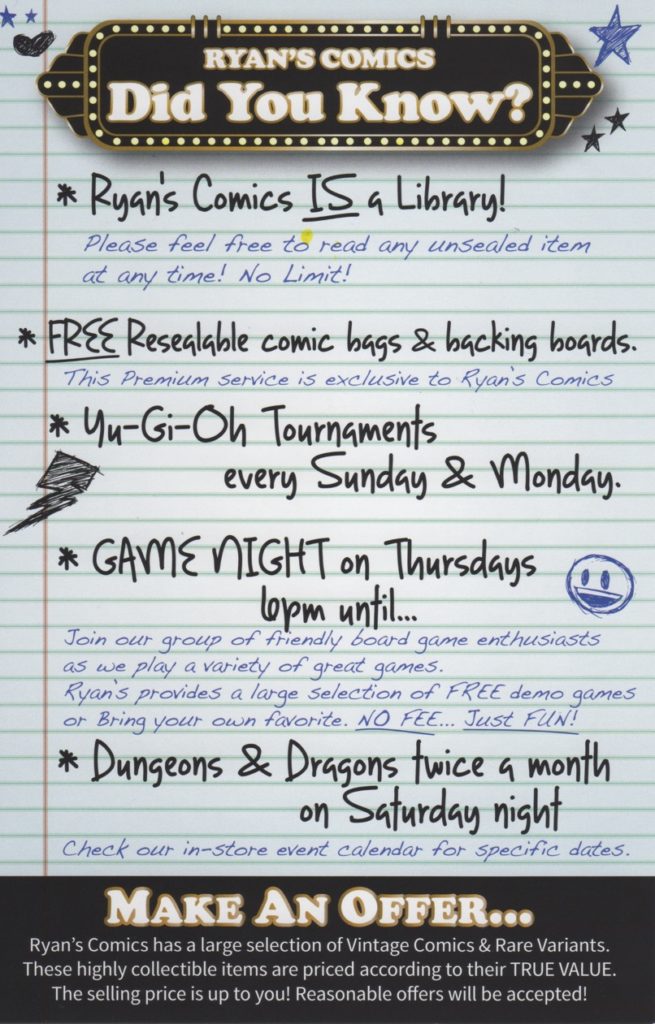 RYAN'S COMICS
Did You Know?
* Ryan's Comics IS a Library!
Please feel free to read any unsealed item
at any time! No Limit!
* FREE Resealable comic bags & backing boards.
This Premium service is exclusive to Ryan's Comics
* Yu-Gi-Oh Tournaments
every Sunday & Monday.
* GAME NIGHT on Thursdays
6pm until...
Join our group of friendly board game enthusiasts
as we play a variety of great games.
Ryan's provides a large selection of FREE demo games
or Bring your own favorite. NO FEE... Just FUN!
* Dungeons & Dragons twice a month
on Saturday night
Check our in-store event calendar for specific dates.
MAKE AN OFFER...
Ryan's Comics has a large selection of Vintage Comics & Rare Variants.
These highly collectible items are priced according to their TRUE VALUE.
The selling price is up to you! Reasonable offers will be accepted!